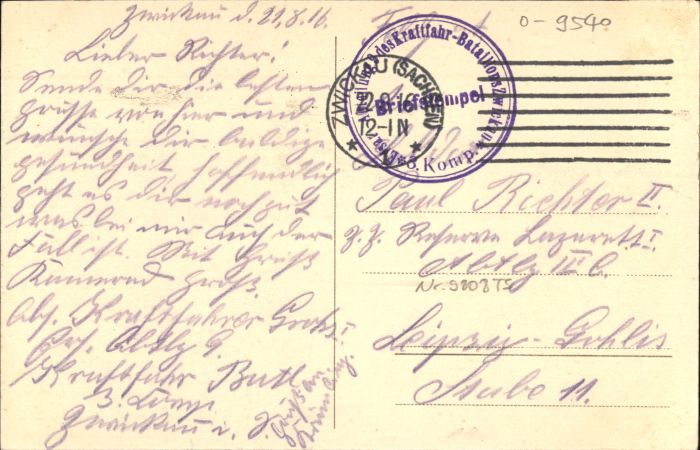 Zwickau d. 22,8.16.
Lieber Richter!
Sende dir die besten
Grüsse von hier und
wünsche dir baldige
gesundheit hoffendlich
geht es dir noch gut
was bei mir auch der
Fall ist. Mit Gruß
Kamerad Groß.
Abs. Kraftfahrer Groß I
Ers. Abtlg
Kraftfahr Batl
3. Komp
Zwickau i. S.
0-9540
des Kraftfahr-Bataillons Zwickau
Briefstempel
3. Komp.
ZWICKAU (SACHSEN)
22.8.16
12-1N
Paul Richter II.
z. Z. Reserve Lazarett I.
Abtlg III C.
Nr. 5808TS
Leipzig-Gohlis
Stube 11.